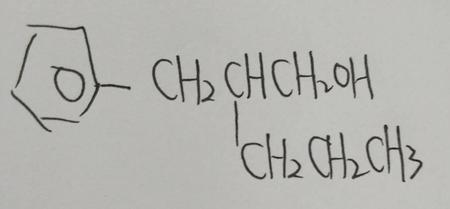 CH₂CHCH₂OH
CH₂CH₂CH₃